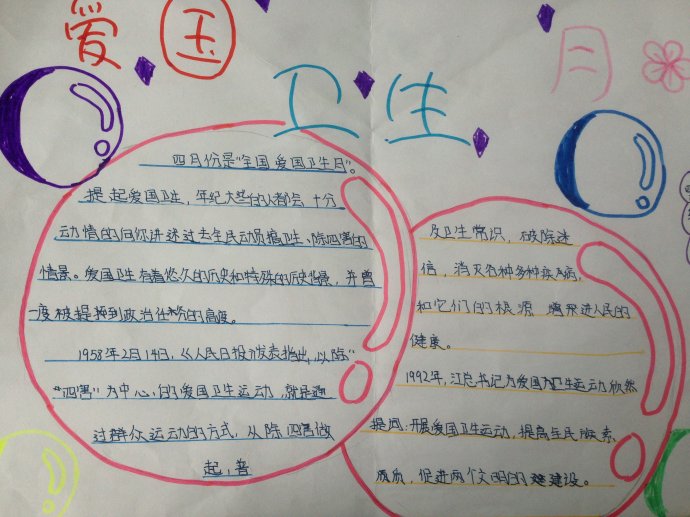 爱国
卫生
月
四月份是“全国爱国卫生月”。
提起爱国卫生，年纪大些的人都会十分
动情的向你讲述过去全民动员搞卫生、除四害的
情景。爱国卫生有着悠久的历史和特殊的历史背景，并曾
一度被提搞到政治任务的高度。
1958年2月14日，《人民日报》发表指出，以除
“四害”为中心，的爱国卫生运动，就是通
过群众运动的方式，从除四害做
起，普
及卫生常识，破除迷
信，消灭各种多种疾病，
和它们的根源，增进人民的
健康。
1992年，江总书记为爱国卫生运动欣然
提词：开展爱国卫生运动，提高全民族素
质，促进两个文明的建设。